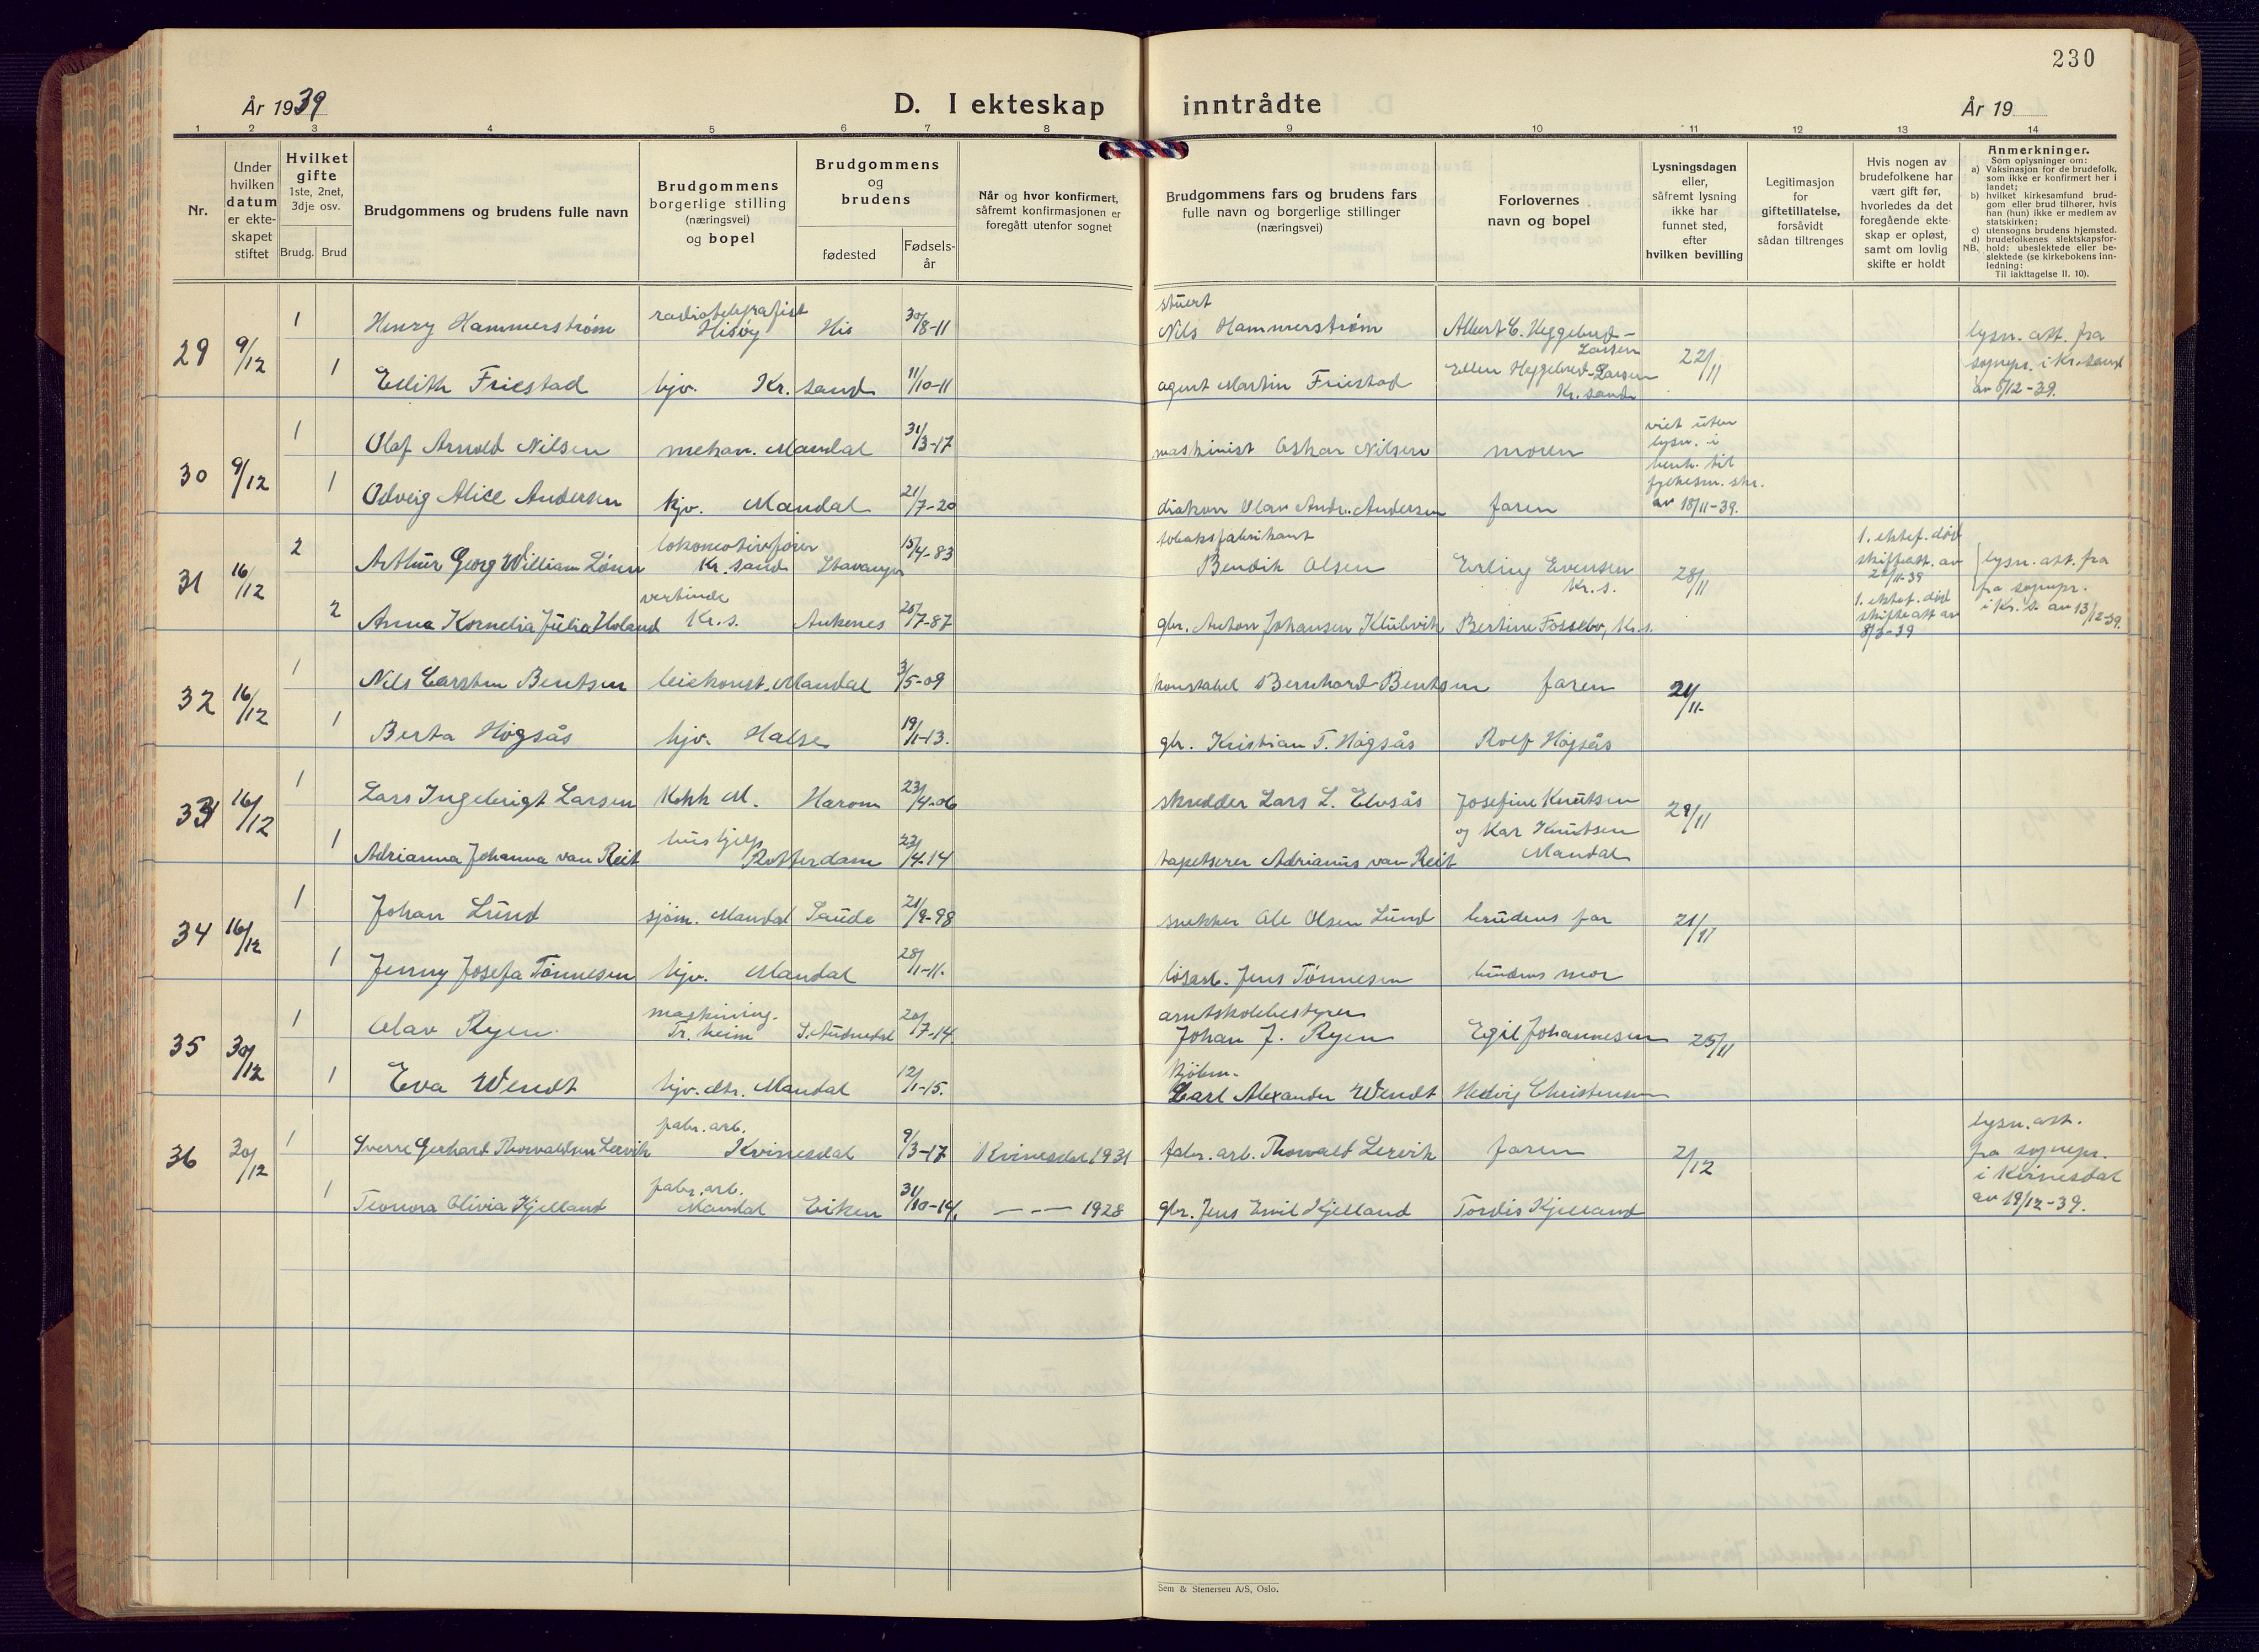 230
År 1939
D. I ekteskap inntrådte
År 19
1 2 3 4 5 6 7 8 9 10 11 12 13 14
Nr.
Under hvilken datum er ekteskapet stiftet
Hvilket gifte
1ste, 2net, 3dje osv.
Brudg. Brud
Brudgommens og brudens fulle navn
Brudgommens borgerlige stilling (næringsvei) og bopel
Brudgommens og brudens
fødested
Fødsels-år
Når og hvor konfirmert, såfremt konfirmasjonen er foregått utenfor sognet
Brudgommens fars og brudens fars fulle navn og borgerlige stillinger (næringsvei)
Forlovernes navn og bopel
Lysningsdagen eller, såfremt lysning ikke har funnet sted, efter hvilken bevilling
Legitimasjon for giftetillatelse, forsåvidt sådan tiltrenges
Hvis nogen av brudefolkene har vært gift før, hvorledes da det foregående ekteskap er opløst, samt om lovlig skifte er holdt
Anmerkninger.
Som oplysninger om:
a) Vaksinasjon for de brudefolk, som ikke er konfirmert her i landet;
b) hvilket kirkesamfund brudgom eller brud tilhører, hvis han (hun) ikke er medlem av statskirken;
c) utensogns brudens hjemsted.
d) brudefolkenes slektskapsfor-
NB. hold: ubeslektede eller beslektede (se kirkebokens innledning:
Til iakttagelse II. 10).
29 9/12 1 Henry Hammerstrøm radiotelegrafist Hisøy His 30/8-11 stuert Nils Hammerstrøm Albert C. Heggebret-Larsen 22/11 lysn. att. fra sognepr. i Kr.sand av 8/12-39.
1 Edith Friestad hjv. Kr.sand 11/10-11 agent Martin Friestad Ellen Heggebret-Larsen Kr.sand
30 9/12 1 Olaf Arnold Nilsen mekan. Mandal 31/3-17 maskinist Oskar Nilsen moren viet uten lysn. i henh. til fylkesm. skr. av 18/11-39.
1 Odveig Alice Andersen hjv. Mandal 21/7-20 diakon Olav Andr. Andersen faren
31 16/12 2 Arthur Georg William Lønn lokomotivfører Kr.sand Stavanger 15/4-83 tobaksfabrikant Bendik Olsen Erling Evensen Kr.s. 28/11 1. ektef. død skifteatt. av 22/11-39 lysn. att. fra fra sognepr. i Kr. s. av 13/12-39.
2 Anna Kornelia Julia Holand vertinde Kr.s. Ankenes 20/7-87 gbr. Anton Johansen Klubvik Bertine Fossebo, Kr.s. 1. ektef. død skifteatt av 8/3-39
32 16/12 1 Nils Carsten Bentsen Mandal 3/5-09 konstabel Bernhard Bentsen faren 21/11-
1 Berta Høgsås hjv. Halse 19/11-13. gbr. Kristian T. Høgsås Rolf Høgsås
33 16/12 1 Lars Ingebrigt Larsen Kokk M. Harom 23/4-06 skredder Lars L. Elvsås Josefine Knutsen og Kar Knutsen Mandal 29/11
1 Adrianna Johanna van Reit hushjelp Rotterdam 23/4-14 tapetserer Adrianus van Reit
34 16/12 1 Johan Lund sjøm. Mandal Saude 21/9-98 snekker Ole Olsen Lund brudens far 21/11
1 Jenny Josefa Tønnesen hjv. Mandal 28/11-11. løsarb. Jens Tønnesen brudens mor
35 30/12 1 Olav Ryen maskining. Tr.heim S. Audnedal 20/7-14. amtskolebestyrer Johan J. Ryen Egil Johannesen 25/11
1 Eva Wendt hjv. dtr. Mandal 12/1-15. kjøbm. Carl Alexander Wendt Hedvig Christensen
36 30/12 1 Sverre Gerhard Thorvaldsen Lervik fabr. arb. Kvinesdal 9/3-17 Kvinesdal 1931 fabr. arb. Thorvald Lervik faren 2/12 lysn. att. fra sognepr. i Kvinesdal av 19/12-39.
1 Teonora Olivia Kjelland fabr. arb. Mandal Eiken 31/10-14. — -- — 1928 gbr. Jens Emil Kjelland Tordis Kjelland
Sem & Stenersen A/S, Oslo.